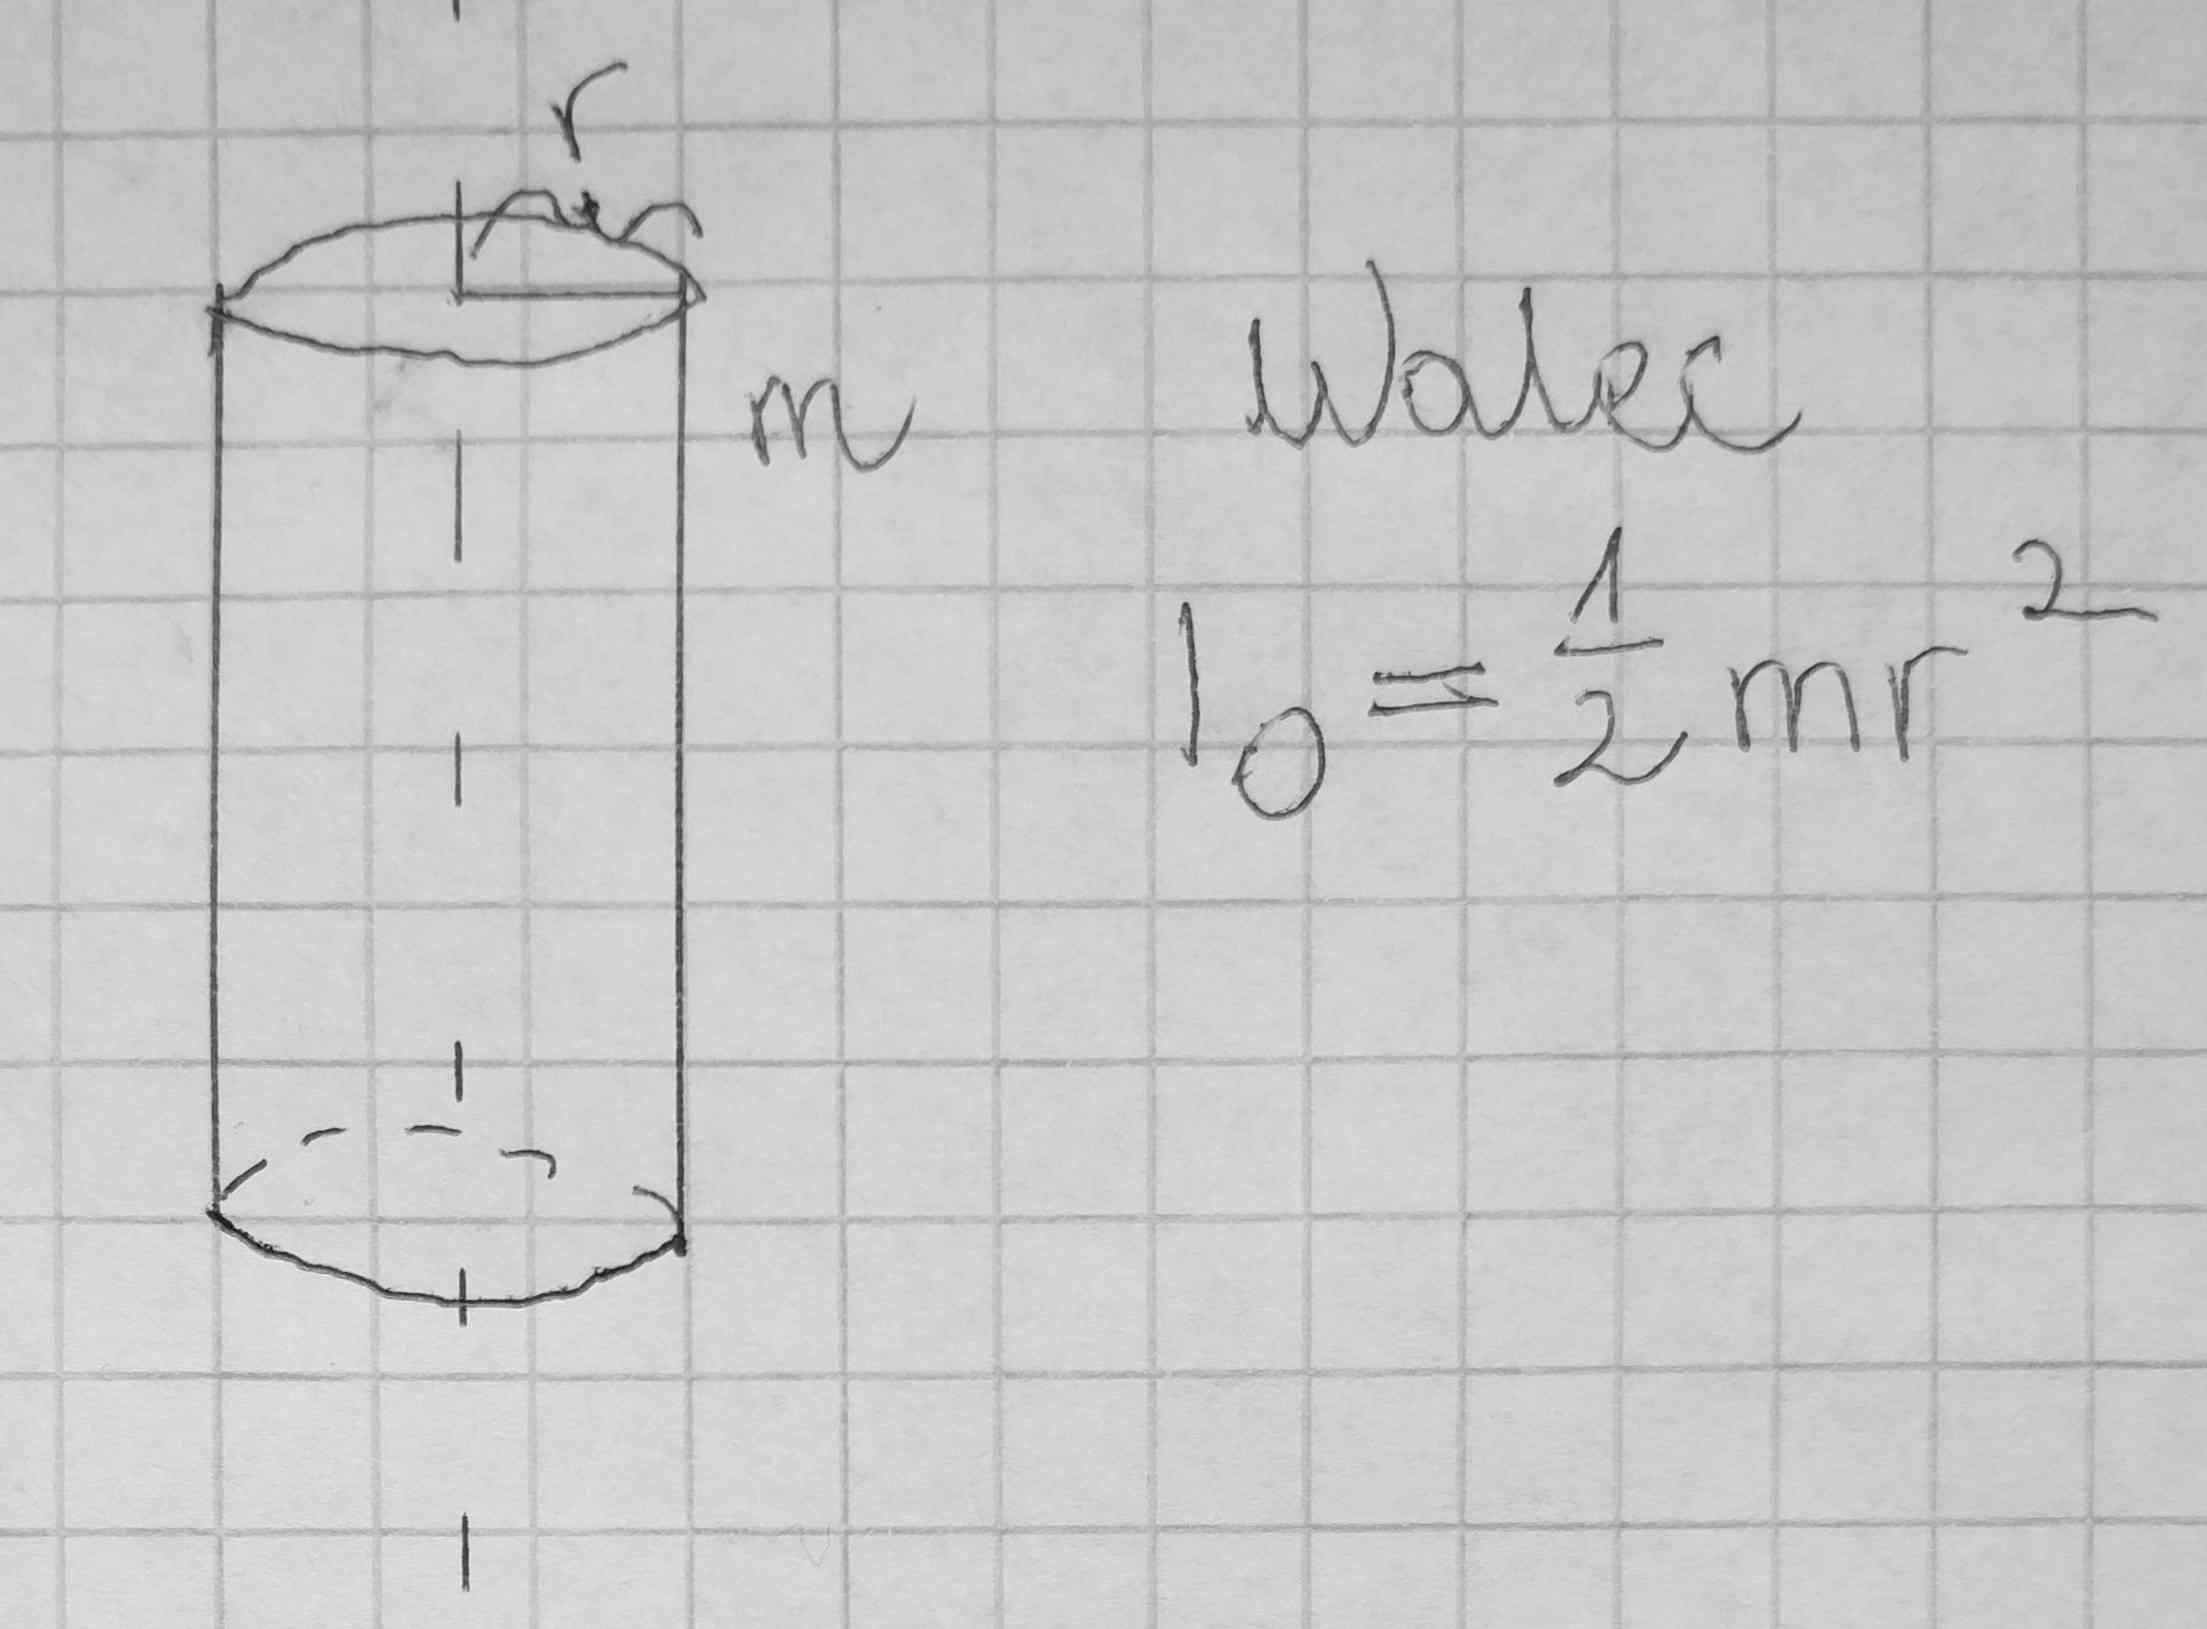 r
m
Walec
I₀ = 1/2 mr²